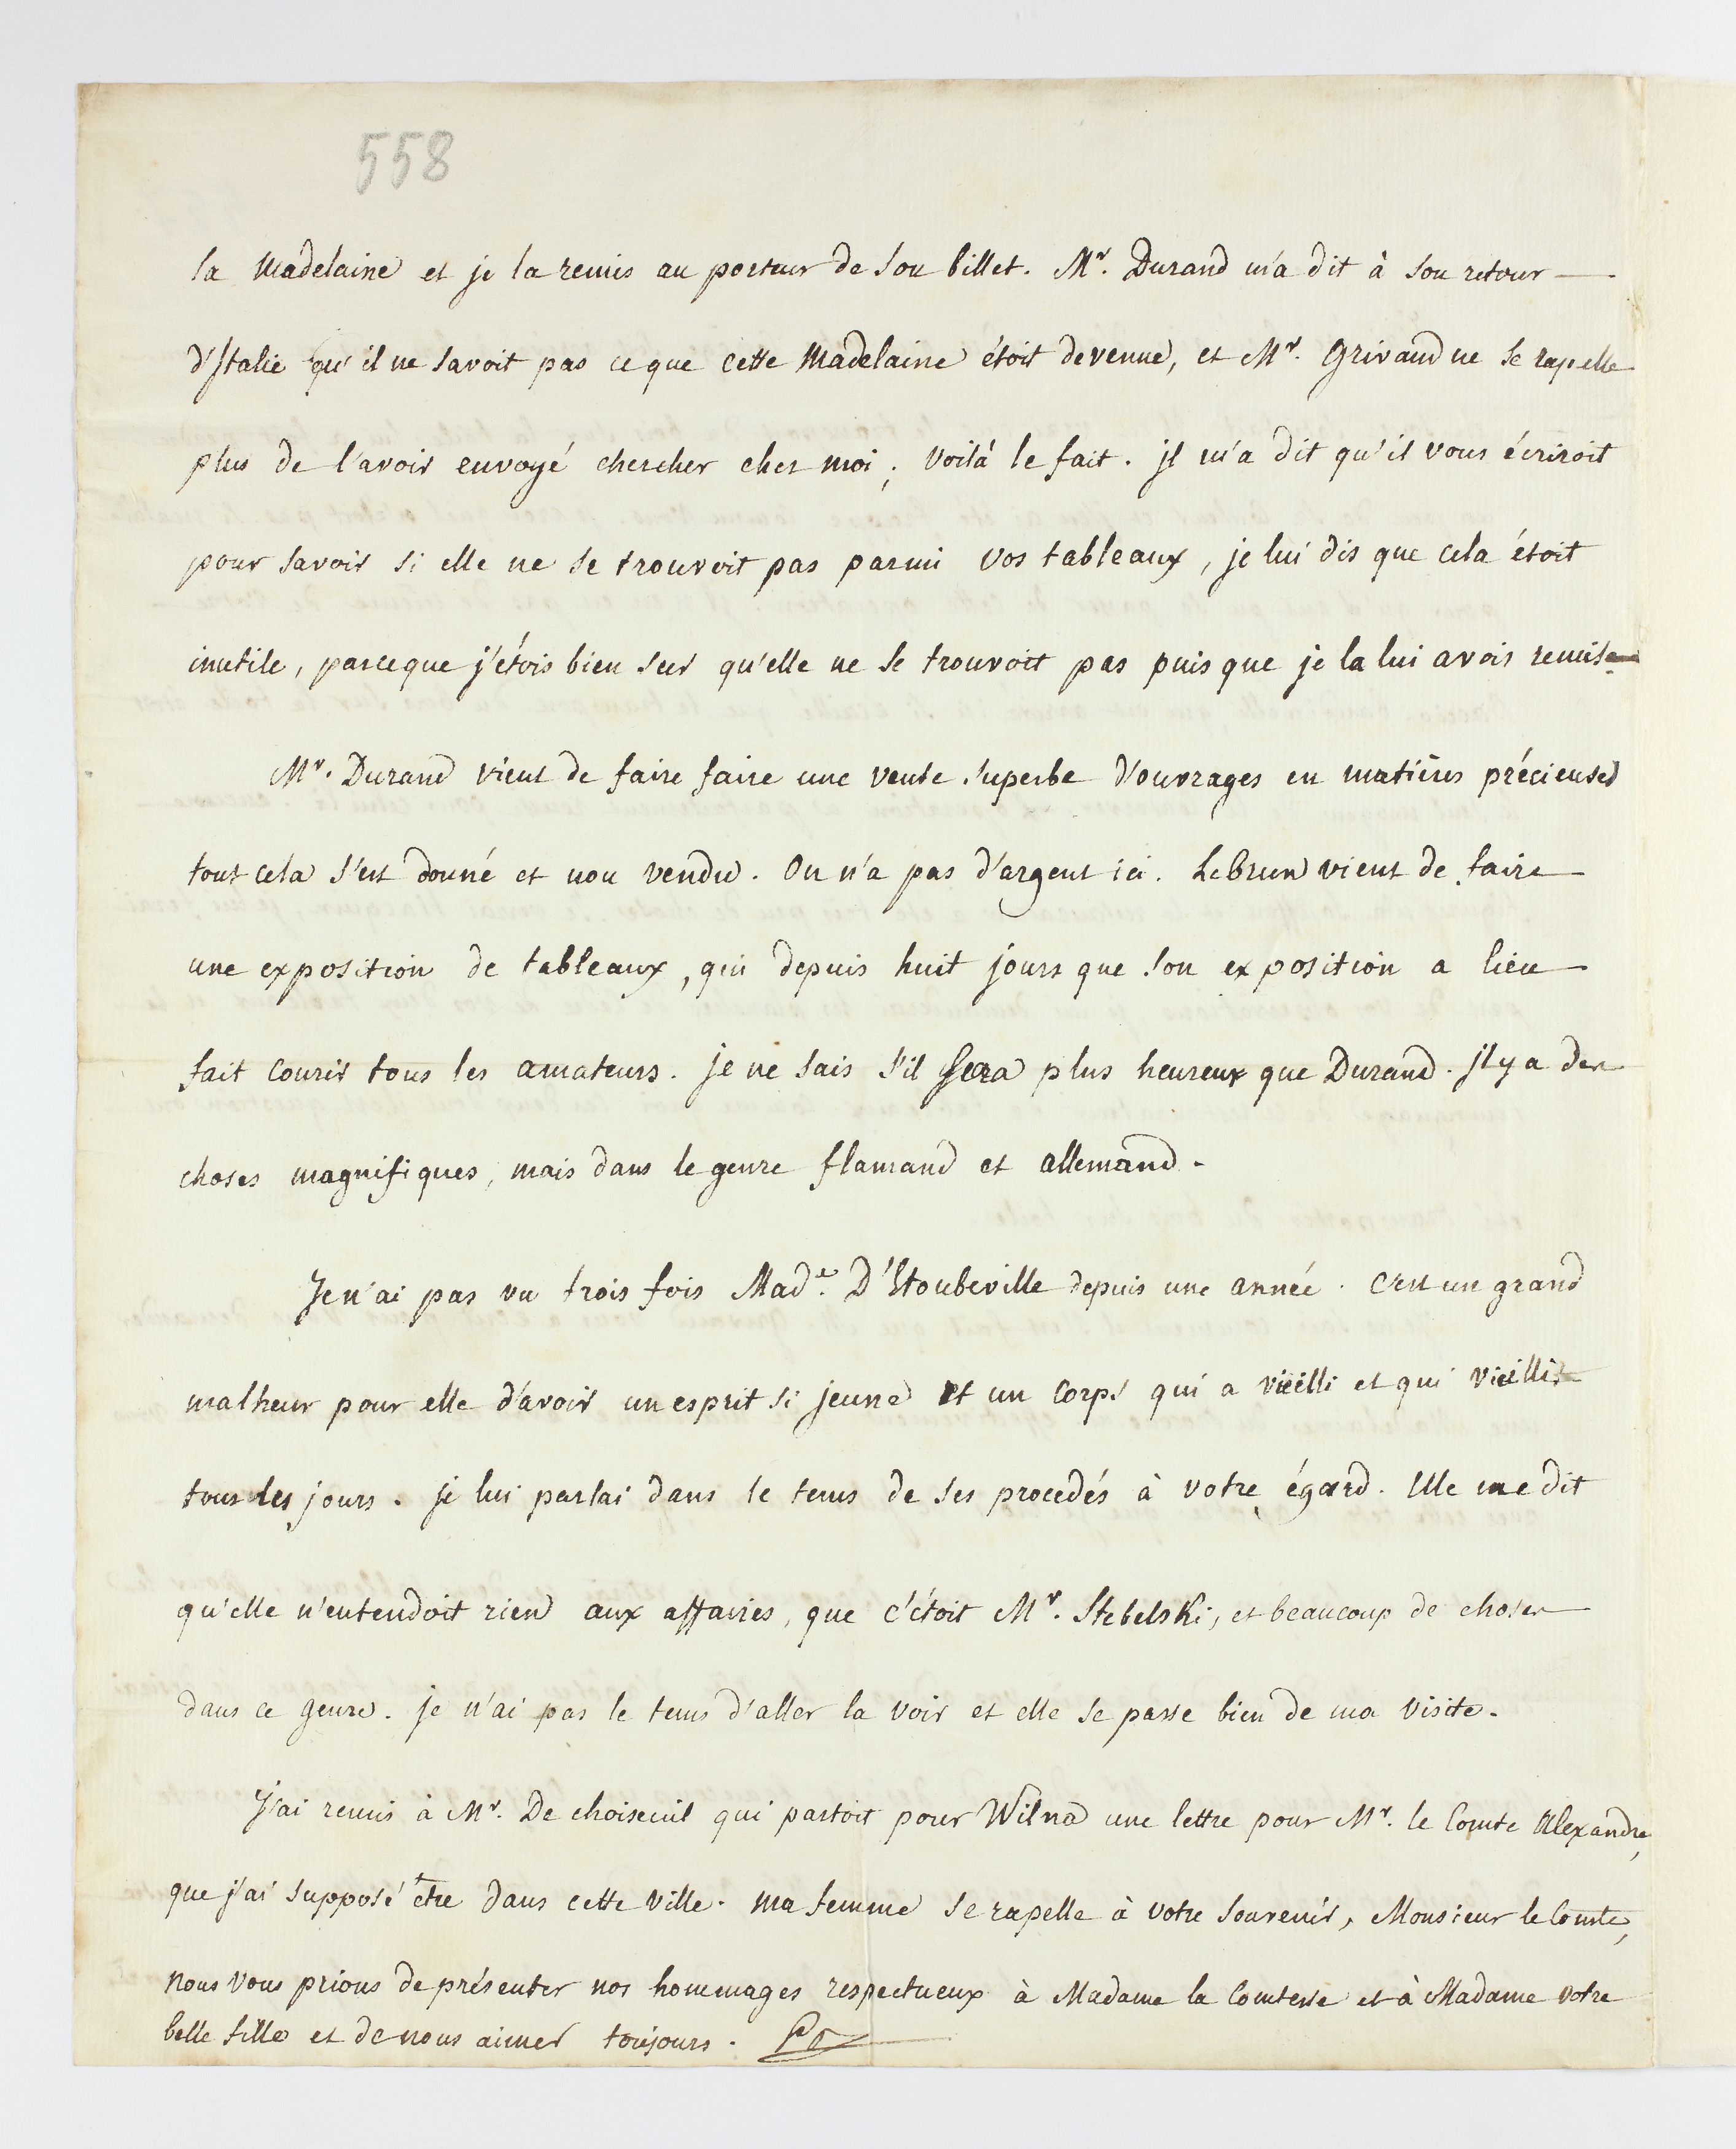 558
la Madelaine et je la remis au porteur de son billet. Mr. Durand m'a dit à son retour
d'Italie qu'il ne savoit pas ce que cette Madelaine étoit devenue, et Mr. Grivaud ne se rapelle
plus de l'avoir envoyé chercher chez moi; voilà le fait. il m'a dit qu'il vous écriroit
pour savoir si elle ne se trouvoit pas parmi vos tableaux, je lui dis que cela étoit
inutile, parceque j'étois bien seur qu'elle ne se trouvoit pas puis que je la lui avois remise
Mr. Durand vient de faire faire une vente superbe d'ouvrages en matières précieuses
tout cela s'est donné et non vendu. On n'a pas d'argent ici. LeBrun vient de faire
une exposition de tableaux, qui depuis huit jours que son exposition a lieu
fait courir tous les amateurs. je ne sais s'il sera plus heureux que Durand. il y a des
choses magnifiques, mais dans le genre flamand et allemand.
Je n'ai pas vu trois fois Made. D'Stoubeville depuis une année. c'est un grand
malheur pour elle d'avoir un esprit si jeune et un corps qui a vieilli et qui vieillit
tous les jours. je lui parlai dans le tems de ses procedés à votre égard. Elle me dit
qu'elle n'entendoit rien aux affaires, que c'étoit Mr. Stebelski, et beaucoup de choses
dans ce genre. je n'ai pas le tems d'aller la voir et elle se passe bien de ma visite.
J'ai remis à Mr. De choiseuil qui partoit pour Wilna une lettre pour Mr. le Comte Alexandre,
que j'ai supposé être dans cette ville. ma femme se rapelle à votre souvenir, Monsieur le Comte,
nous vous prions de présenter nos hommages respectueux à Madame la Comtesse et à Madame votre
belle fille et de nous aimer toujours.